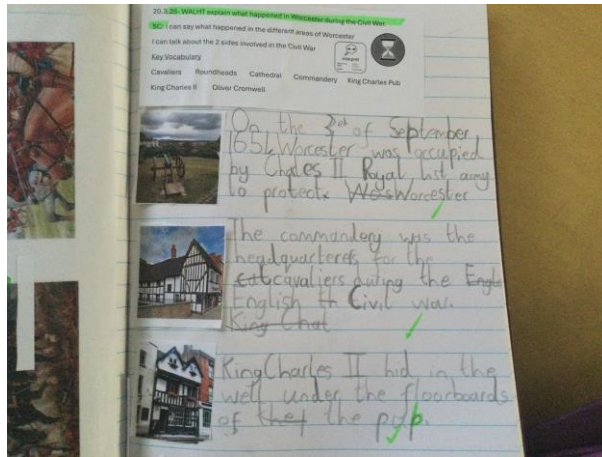 20.3.25- WALHT explain what happened in Worcester during the Civil War
SC: I can say what happened in the different areas of Worcester
I can talk about the 2 sides involved in the Civil War
Interpret
Key Vocabulary
Cavaliers Roundheads Cathedral Commandery King Charles Pub
King Charles II Oliver Cromwell
On the 3rd of September,
1651, Worcester was occupied
by Chales II Royal list
to protect Worcester
The commandory was the
headquarterers for the
cavaliers during the
English Civil war.
King Chal
King Charles II hid in the
well under the floorboards
of the the pub.